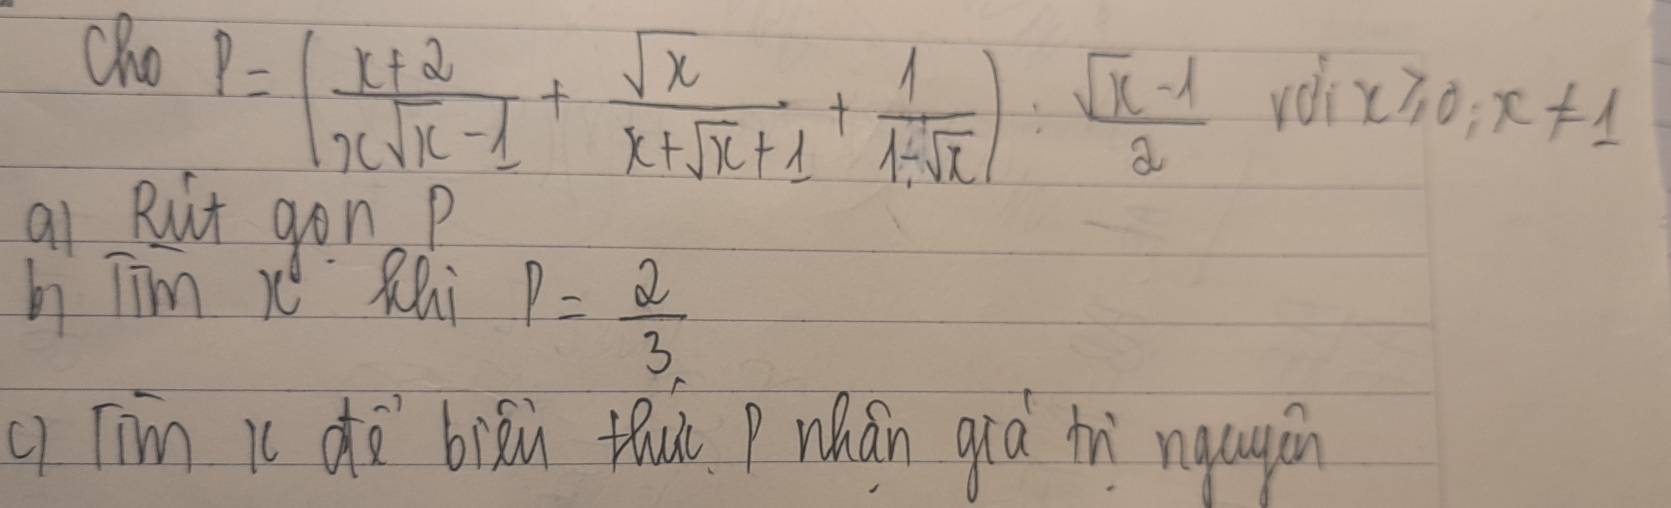 Cho P = (x+2/x√x-1 + √x/x+√x+1 + 1/1-√x) : √x-1/2 với x ≥ 0; x ≠ 1
a) Rút gọn P
b) Tìm x khi P = 2/3
c) Tìm x để biểu thức P nhận giá trị nguyên